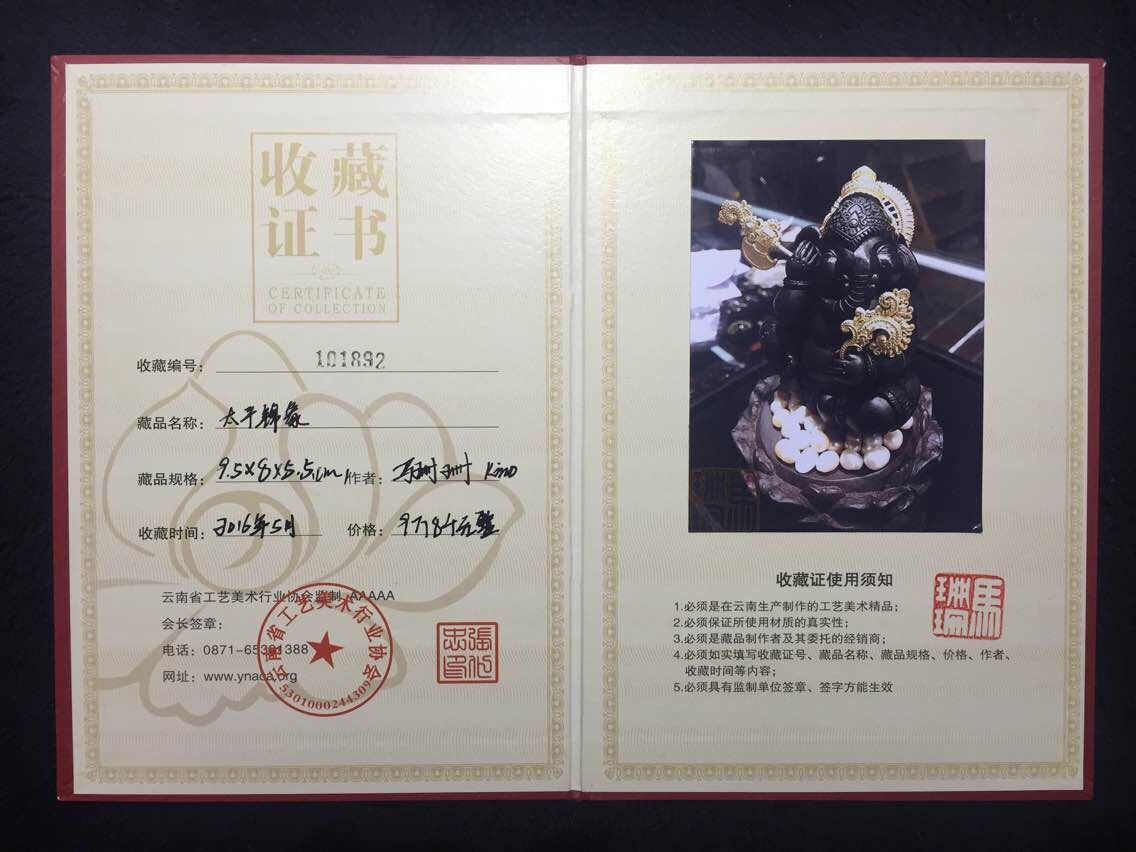 收藏
证书
CERTIFICATE
OF COLLECTION
收藏编号: 101892
藏品名称: 太平锦缘
藏品规格: 9.5×8×5.5cm 作者: 马珊珊 Kino
收藏时间: 2016年5月 价格: 9万8仟元整
云南省工艺美术行业协会监制 AAAAA
会长签章:
电话: 0871-65391388
网址: www.ynaca.org
云南省工艺美术行业协会
5301000244309
收藏证使用须知
1.必须是在云南生产制作的工艺美术精品;
2.必须保证所使用材质的真实性;
3.必须是藏品制作者及其委托的经销商;
4.必须如实填写收藏证号、藏品名称、藏品规格、价格、作者、
收藏时间等内容;
5.必须具有监制单位签章、签字方能生效